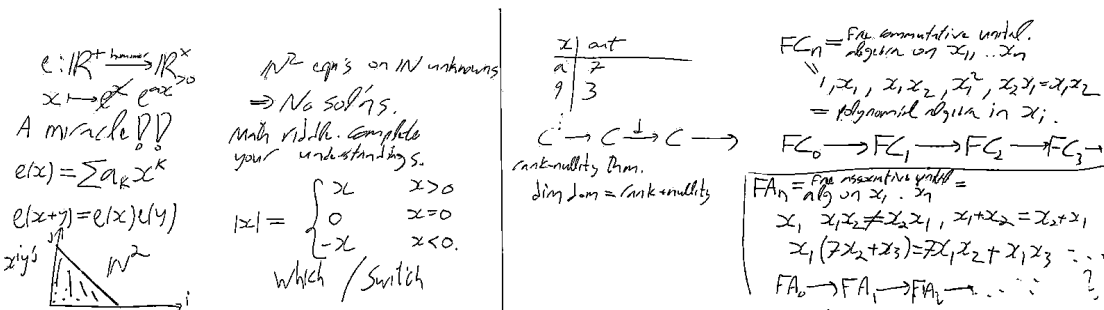 e: ℝ⁺ homom→ ℝˣ>0
x ↦ eˣ e^{ax}
A miracle!!
e(x) = ∑ aₖ xᵏ
e(x+y) = e(x)e(y)
xⁱyʲ's
j
ℕ²
i
ℕ² eqn's on ℕ unknowns
⇒ No sol'ns.
Math riddle. Complete
your understandings.
|x| = { x x>0
0 x=0
-x x<0.
which / switch
x | out
a 7
9 3
⋮
C → C →d C →
rank-nullity thm.
dim dom = rank+nullity
FCₙ = Free commutative unital
algebra on x₁, .. xₙ
1, x₁, x₁x₂, x₁², x₂x₁=x₁x₂
= polynomial algebra in xᵢ.
FC₀ → FC₁ → FC₂ → FC₃ →
FAₙ = Free associative unital =
alg on x₁ .. xₙ
x₁ x₁x₂ ≠ x₂x₁, x₁+x₂ = x₂+x₁
x₁(7x₂+x₃) = 7x₁x₂ + x₁x₃ ...
FA₀ → FA₁ → FA₂ → ... ?